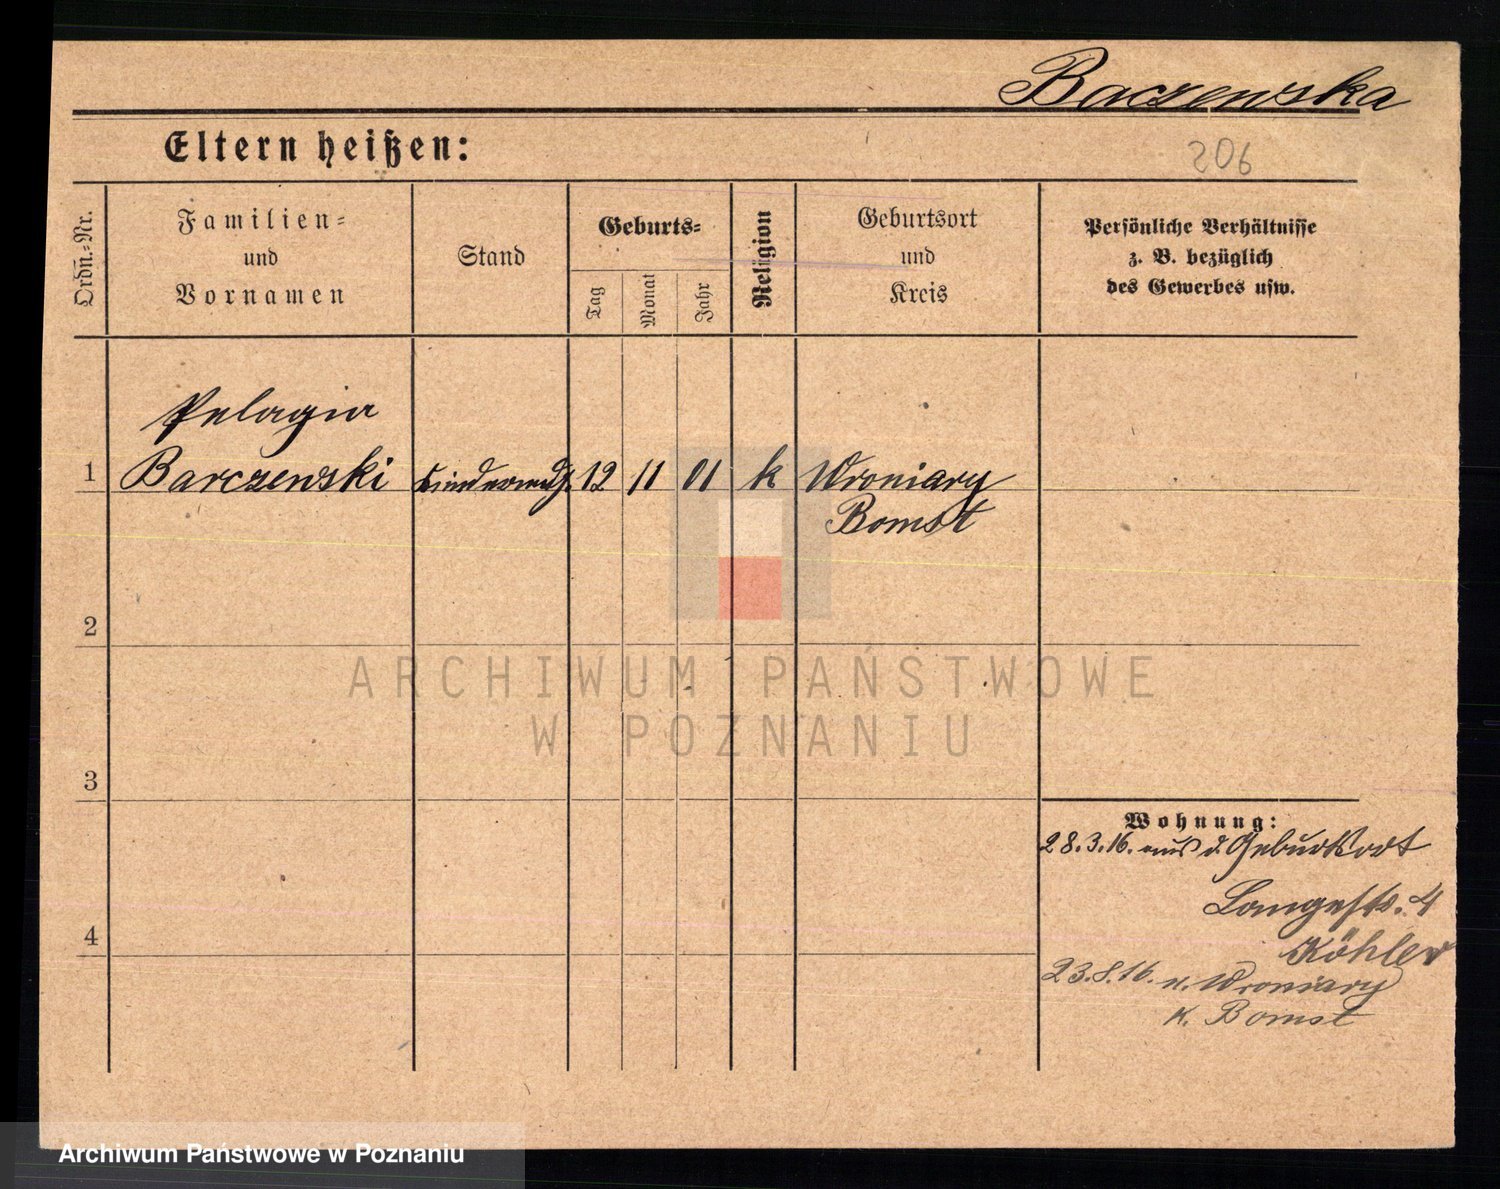 Baczewska
Eltern heißen:
206
Ordn.-Nr.
Familien-
und
Vornamen
Stand
Geburts-
Tag
Monat
Jahr
Religion
Geburtsort
und
Kreis
Persönliche Verhältnisse
z. B. bezüglich
des Gewerbes usw.
Pelagia
1 Barczewski Kindermdch. 12 11 01 k Wroniary
Bomst
2
ARCHIWUM PAŃSTWOWE
W POZNANIU
3
Wohnung:
28.3.16. aus d. Geburtsort
Langestr. 4
Köhler
4
23.8.16. n. Wroniary
K. Bomst
Archiwum Państwowe w Poznaniu